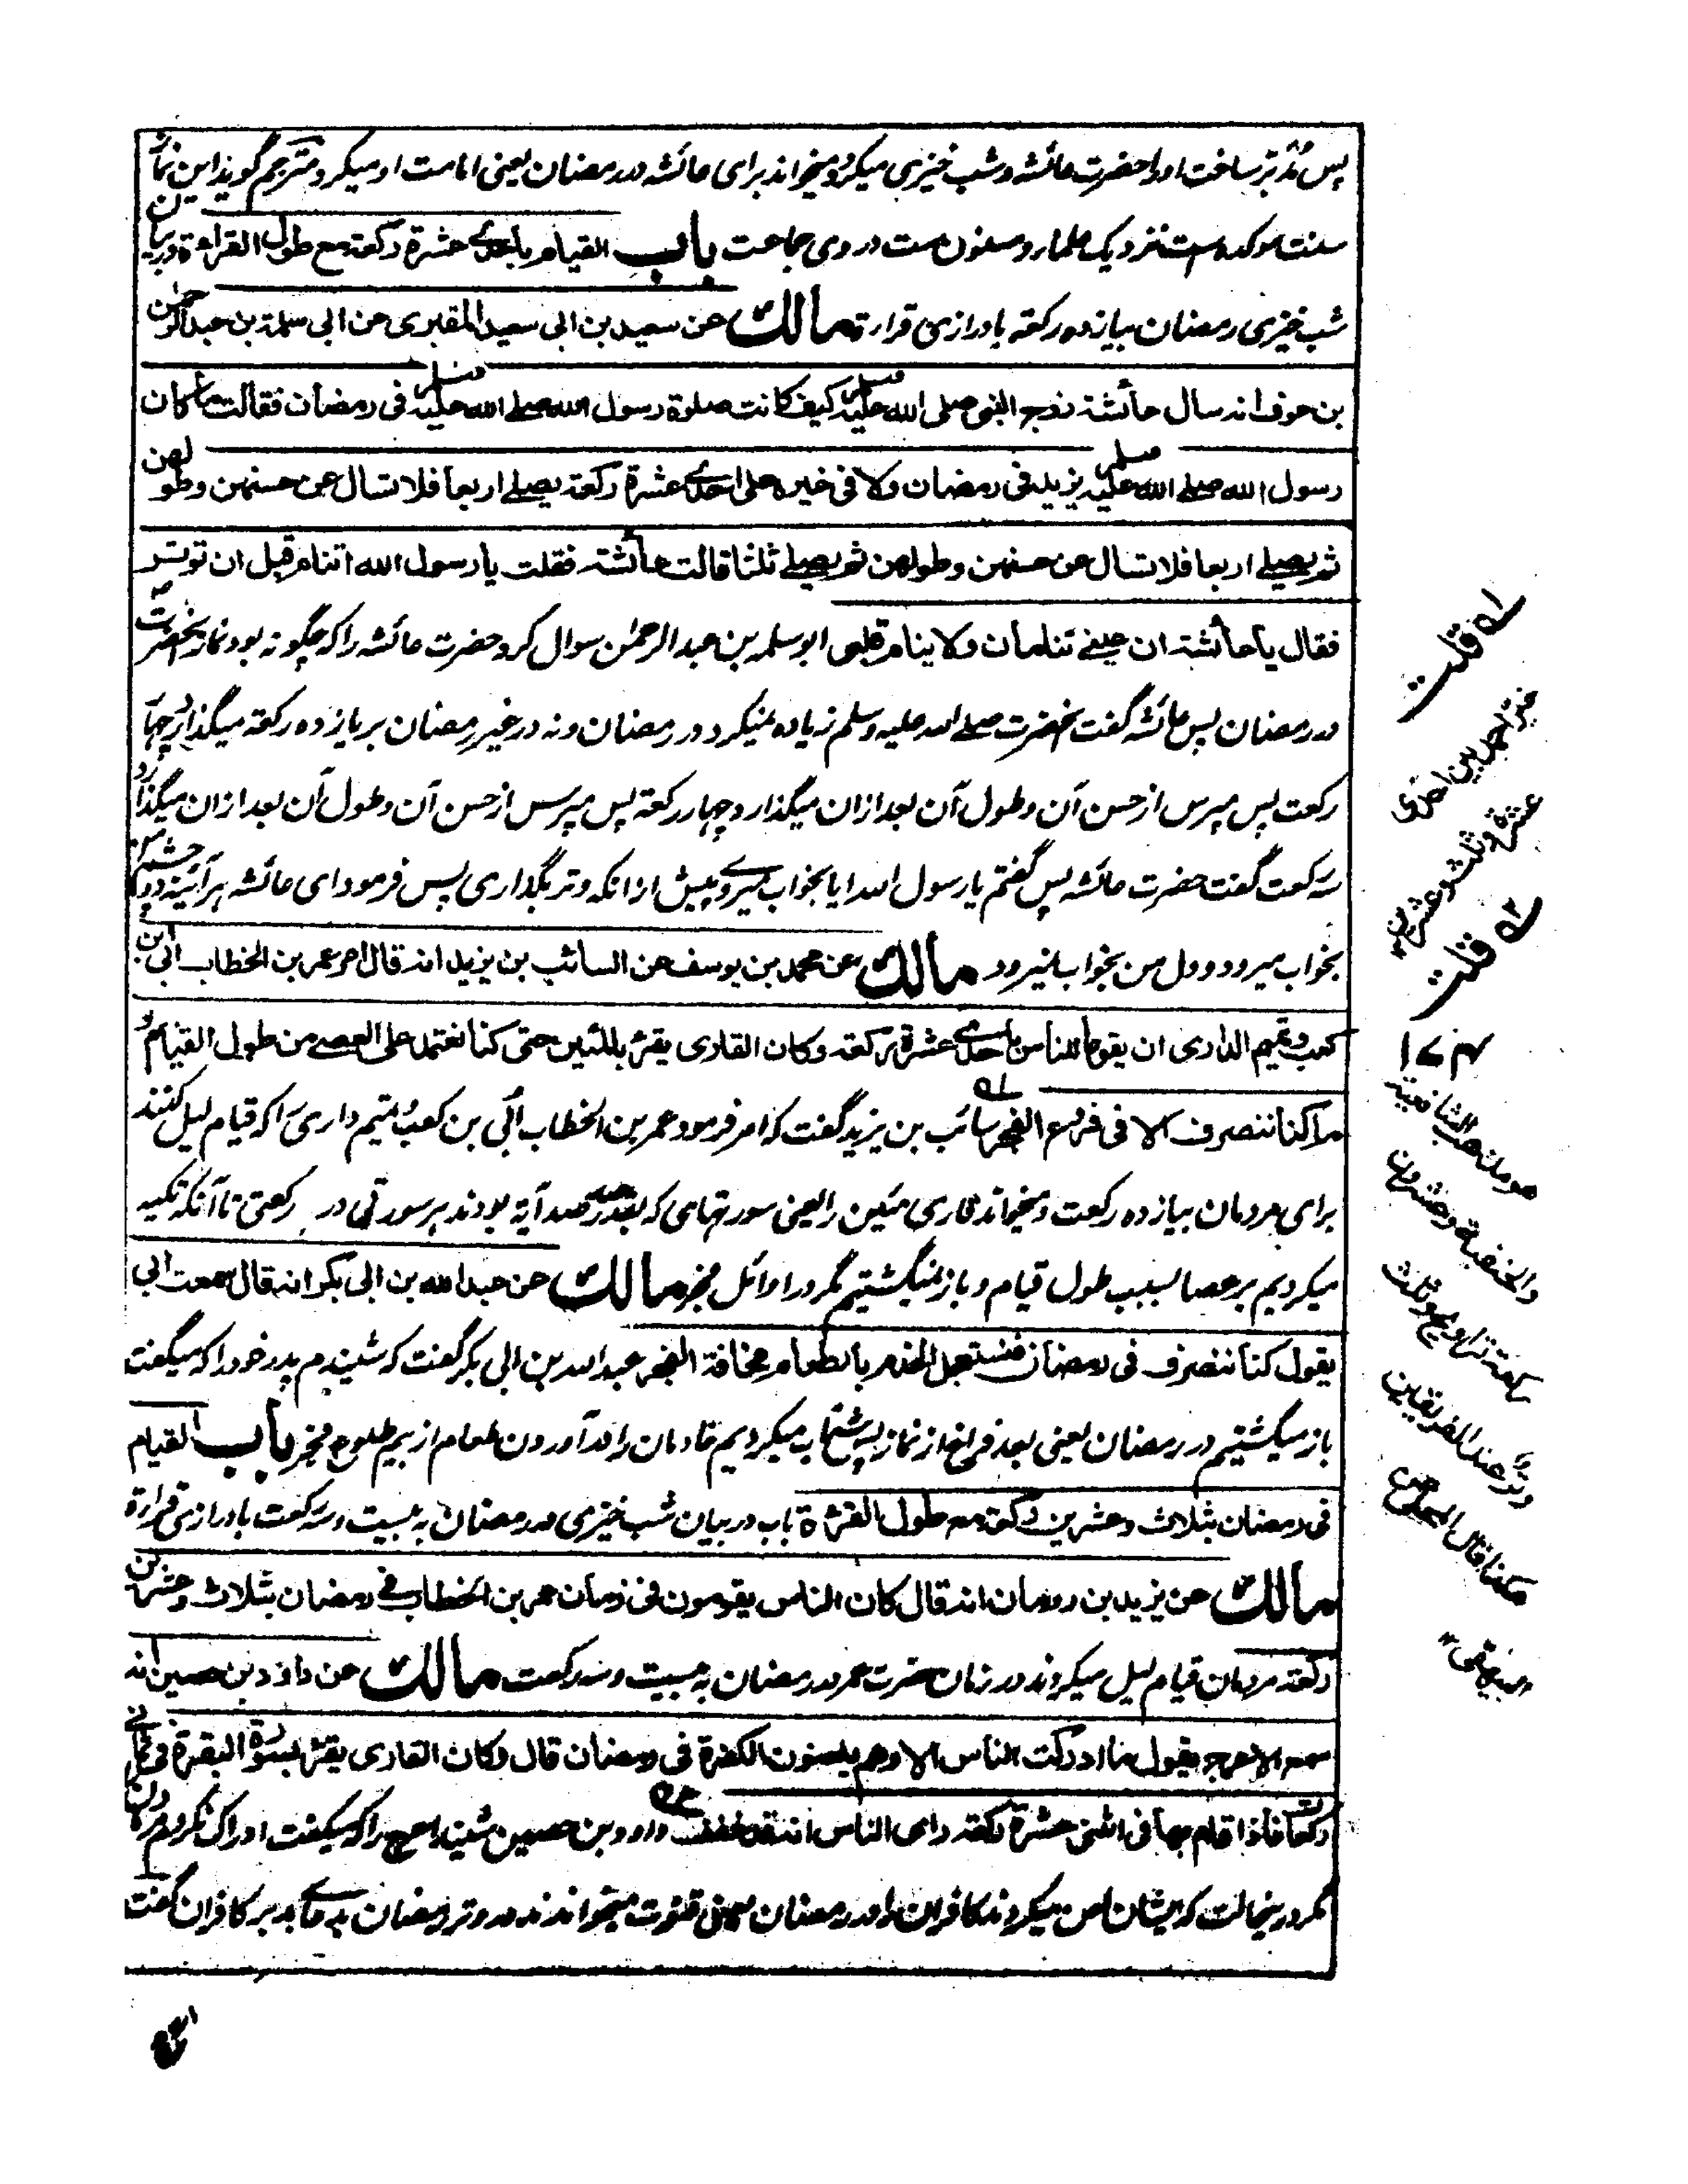 پس مدبر ساخت او را حضرت عائشه و شب خیزی میکرد و میخواند برای عائشه در رمضان یعنی امامت او میکرد مترجم گوید این نماز
سنت موکده است نزدیک علما و مسنون است در وی جماعت باب القیام باحدی عشرة رکعة مع طول القراءة در بیان
شب خیزی رمضان بیازده رکعة با درازی قراءة مالك عن سعید بن ابی سعید المقبری عن ابی سلمة بن عبدالرحمن
بن عوف انه سال عائشة زوج النبی صلی الله علیه وسلم کیف کانت صلوة رسول الله صلی الله علیه وسلم فی رمضان فقالت ما کان
رسول الله صلے الله علیه وسلم یزید فی رمضان ولا فی غیره علی احدی عشرة رکعة یصلے اربعا فلا تسال عن حسنهن وطولهن
ثم یصلے اربعا فلا تسال عن حسنهن وطولهن ثم یصلے ثلثا قالت عائشة فقلت یا رسول الله اتنام قبل ان توتر
فقال یا عائشة ان عینی تنامان ولا ینام قلبی ابو سلمه بن عبد الرحمن سوال کرد حضرت عائشه را که چگونه بود نماز آنحضرت صـ
در رمضان پس عائشه گفت آنحضرت صلے الله علیه وسلم زیاده نمیکرد در رمضان و نه در غیر رمضان بر یازده رکعة میگذارد چهار
رکعت پس مپرس از حسن آن و طول آن بعد ازان میگذارد چهار رکعة پس مپرس از حسن آن و طول آن بعد ازان میگذارد
سه رکعت گفت حضرت عائشه پس گفتم یا رسول الله ایا بخواب میروی پیش ازانکه وتر بگذاری پس فرمود ای عائشه هر آئینه دو چشم من
بخواب میرود و دل من بخواب نمیرود مالك عن محمد بن یوسف عن السائب بن یزید انه قال امر عمر بن الخطاب ابی بن
کعب و تمیم الداری ان یقوما للناس باحدی عشرة رکعة وکان القاری یقرٔ بالمئین حتی کنا نعتمد علی العصے من طول القیام و
ما کنا ننصرف الا فی فروع الفجر سائب بن یزید گفت که امر فرمود عمر بن الخطاب ابی بن کعب و تمیم داری را که قیام لیل کنند
برای مردمان بیازده رکعت و میخواند قاری مئین را یعنی سورتهای که بقدر صد آیه بودند هر سورتی در رکعتی تا آنکه تکیه
میکردیم بر عصا بسبب طول قیام و باز نمیگشتیم مگر در اوائل فجر مالك عن عبدالله بن ابی بکر انه قال سمعت ابی
یقول کنا ننصرف فی رمضان فنستعجل الخدم بالطعام مخافة الفجر عبد الله بن ابی بکر گفت که شنیدم پدر خود را که میگفت
باز میگشتیم در رمضان یعنی بعد فراغ از نماز پس شتاب میکردیم خادمان را در آوردن طعام از بیم طلوع فجر باب القیام
فی رمضان بثلاث وعشرین رکعة مع طول القرٔة باب در بیان شب خیزی در رمضان به بیست و سه رکعت با درازی قراءة
مالك عن یزید بن رومان انه قال کان الناس یقومون فی زمان عمر بن الخطاب فے رمضان بثلاث وعشرین
رکعة مردمان قیام لیل میکردند در زمان حضرت عمر در رمضان به بیست و سه رکعت مالك عن داؤد بن حصین انه
سمع الاعرج یقول ما ادرکت الناس الا وهم یلعنون الکفرة فی رمضان قال وکان القاری یقرٔ بسورة البقرة فی ثمانی
رکعات فاذا قام بها فی اثنی عشرة رکعة رای الناس انه قد خفف داود بن حصین شنید اعرج را که میگفت ادراک نکردم مردمان
مگر درینحالت که ایشان لعن میکردند کافران را در رمضان یعنی قنوت میخواندند در وتر رمضان به دعاء بد بر کافران گفت
له قلت
خیّر احمد بین احدی
عشرة وثلث وعشرین
له قلت
هو مذهب الشافعیة
والحنفیة وعشرون
رکعة تراویح وثلث
وتر عند الفریقین
هکذا قال المحلی عن
البیهقی